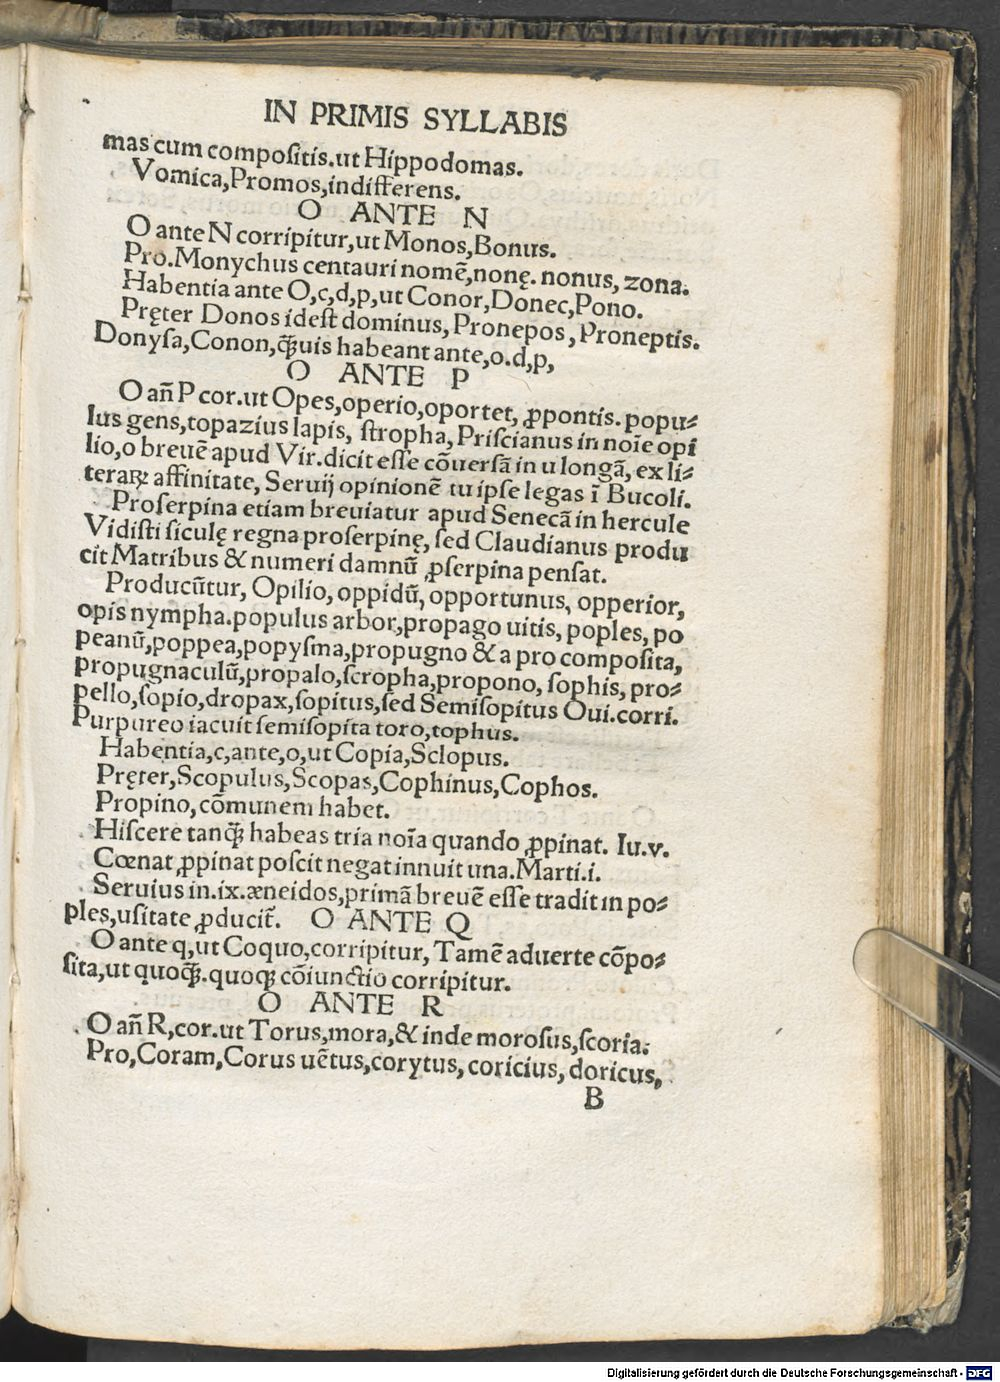 IN PRIMIS SYLLABIS
mas cum compoſitis.ut Hippodomas.
Vomica,Promos,indifferens.
O ANTE N
O ante N corripitur,ut Monos,Bonus.
Pro.Monychus centauri nomē,nonę. nonus, zona.
Habentia ante O,c,d,p,ut Conor,Donec,Pono.
Pręter Donos ideſt dominus, Pronepos, Proneptis.
Donyſa,Conon,q̄uis habeant ante,o.d,p,
O ANTE P
O an̄ P cor.ut Opes,operio,oportet, ꝓpontis. popu⸗
lus gens,topazius lapis, ſtropha, Priſcianus in noīe opi
lio,o breuē apud Vir.dicit eſſe cōuerſā in u longā, ex li⸗
teraꝝ affinitate, Seruij opinionē tu ipſe legas ī Bucoli.
Proſerpina etiam breuiatur apud Senecā in hercule
Vidiſti ſiculę regna proſerpinę, ſed Claudianus produ
cit Matribus & numeri damnū ꝓſerpina penſat.
Producūtur, Opilio, oppidū, opportunus, opperior,
opis nympha.populus arbor,propago uitis, poples, po
peanū,poppea,popyſma,propugno & a pro compoſita,
propugnaculū,propalo,ſcropha,propono, ſophis, pro⸗
pello,ſopio,dropax,ſopitus,ſed Semiſopitus Oui.corri.
Purpureo iacuit ſemiſopita toro,tophus.
Habentia,c,ante,o,ut Copia,Sclopus.
Pręter,Scopulus,Scopas,Cophinus,Cophos.
Propino,cōmunem habet.
Hiſcere tanq̄ habeas tria noīa quando ꝓpinat. Iu.v.
Cœnat ꝓpinat poſcit negat innuit una.Marti.i.
Seruius in.ix.æneidos,primā breuē eſſe tradit in po⸗
ples,uſitate ꝓducit̄. O ANTE Q
O ante q,ut Coquo,corripitur, Tamē aduerte cōpo⸗
ſita,ut quoq̄.quoqꝫ cōiunctio corripitur.
O ANTE R
O an̄ R,cor.ut Torus,mora,& inde moroſus,ſcoria.
Pro,Coram,Corus uētus,corytus, coricius, doricus,
B
Digitalisierung gefördert durch die Deutsche Forschungsgemeinschaft - DFG